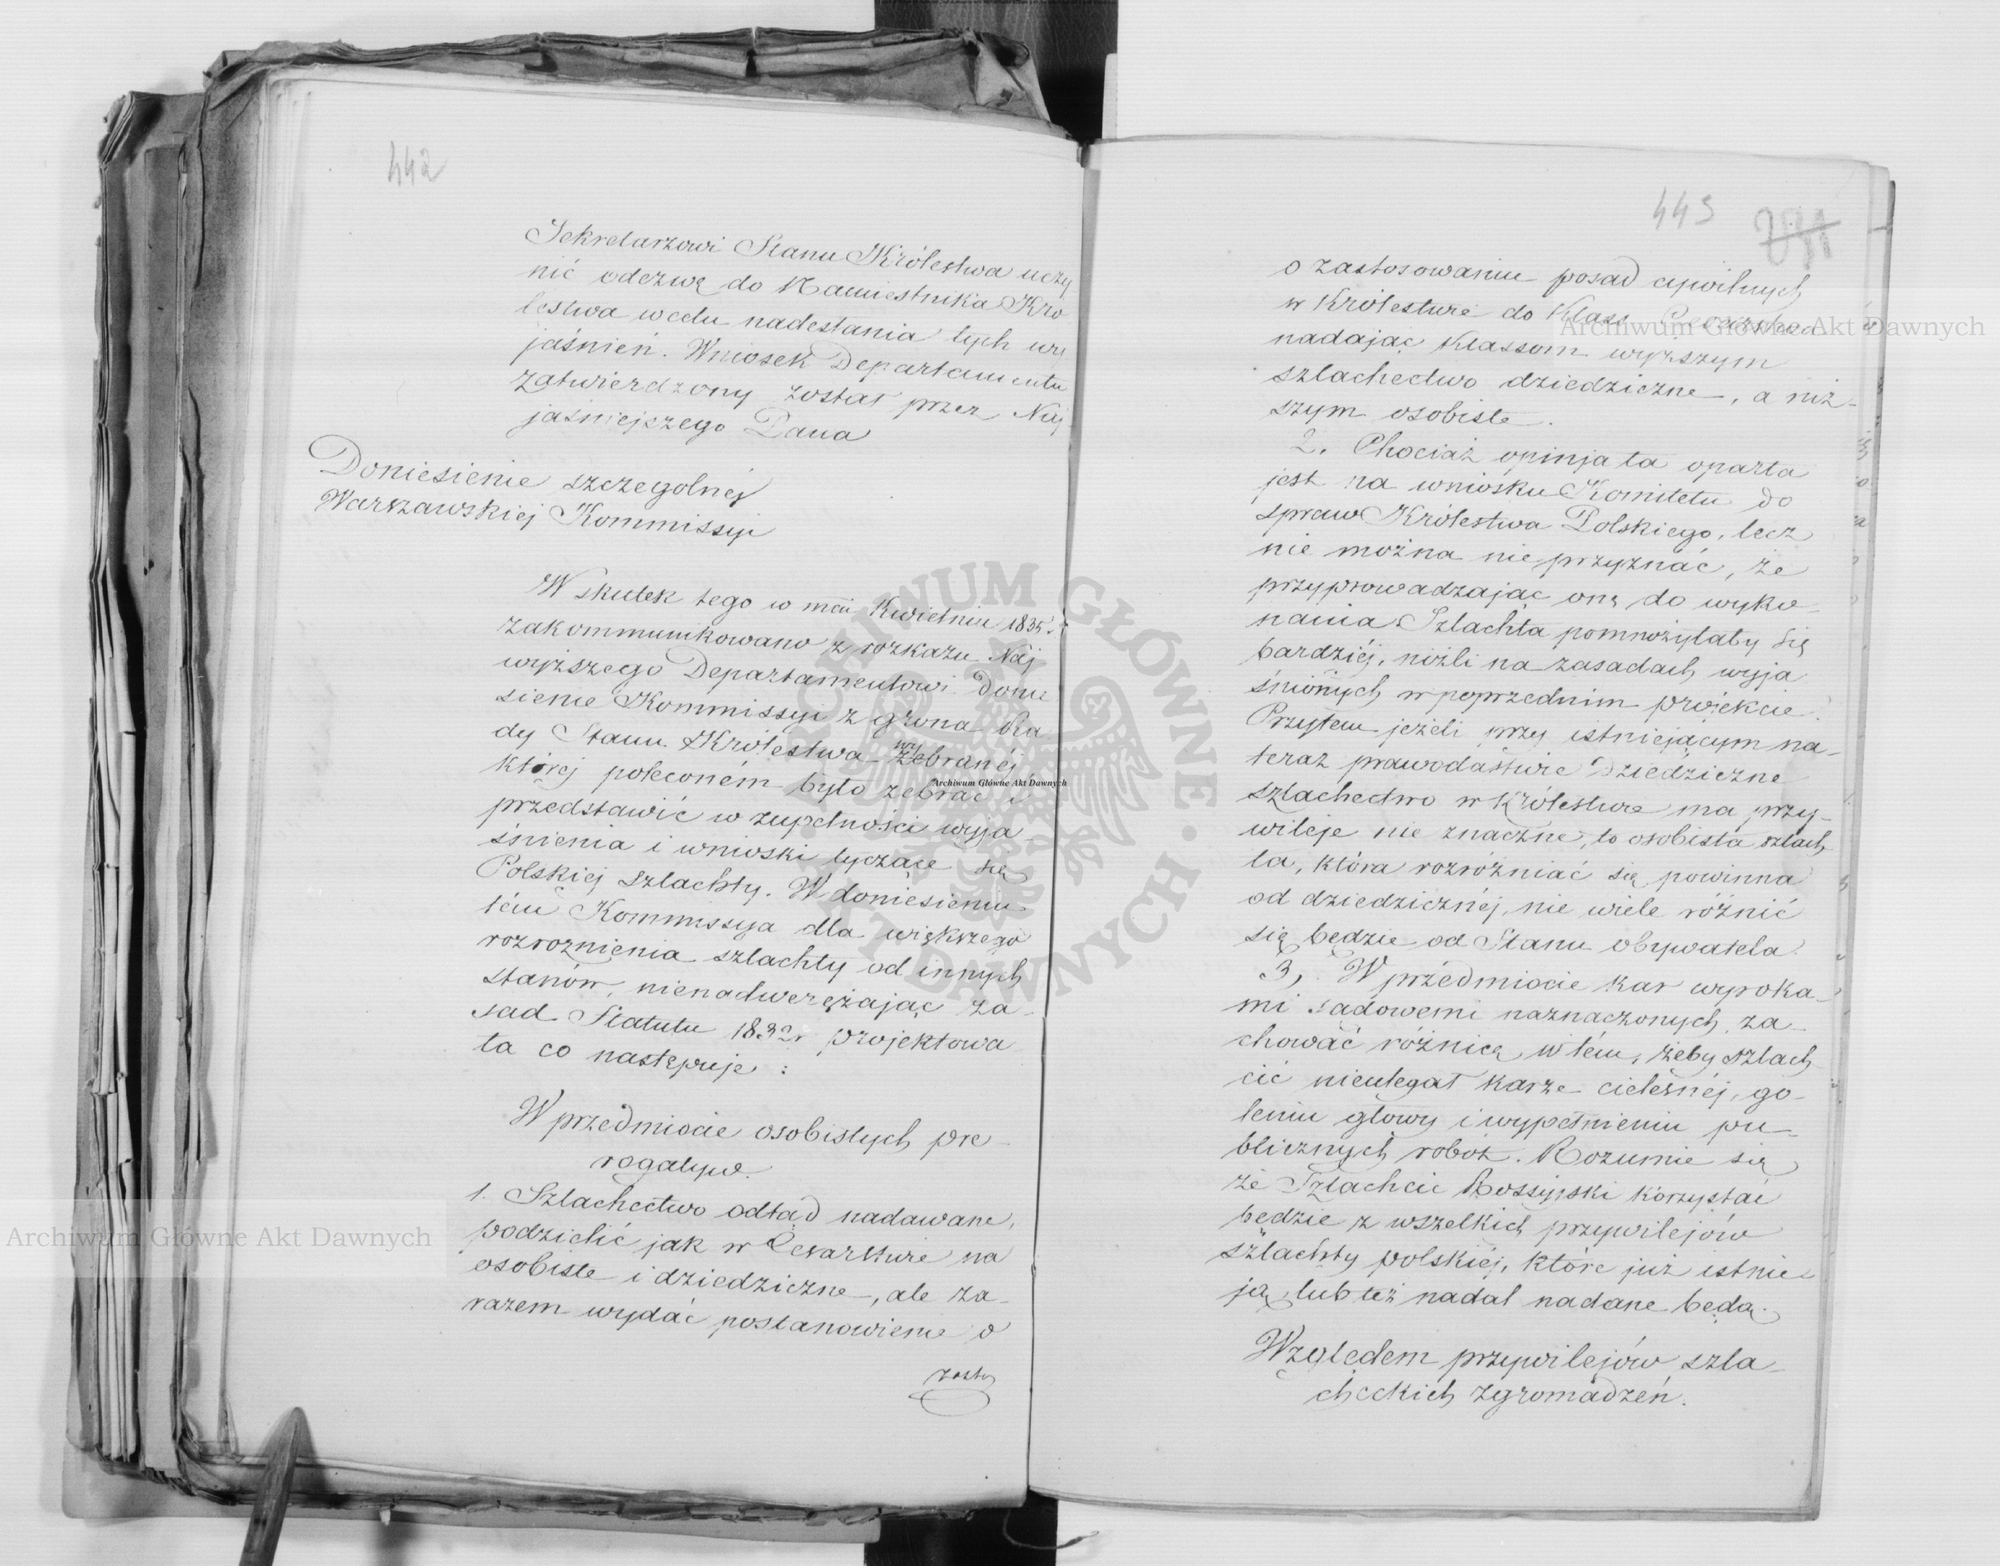 442
Sekretarzowi Stanu Królestwa uczy
nić odezwę do Namiestnika Kró
lestwa w celu nadesłania tych wy
jaśnień. Wniosek Departamentu
zatwierdzony został przez Naj
jaśniejszego Pana
Doniesienie szczególnéj
Warszawskiej Kommissyi
W skutek tego w mcu Kwietniu 1835 r.
zakommunikowano z rozkazu Naj
wyższego Departamentowi donie
sienie Kommissyi z grona Ra
dy Stanu Królestwa wyzebranéj
któréj poleconém było zebrać i
przedstawić w zupełności wyja
śnienia i wnioski tyczące się
Polskiej szlachty. W doniesieniu
tém Kommissya dla większego
rozroznienia szlachty od innych
stanów, nienadwerężając za-
sad Statutu 1832 r projektowa
ła co następuje:
W przedmiocie osobistych pre-
rogatyw.
1. Szlachectwo odtąd nadawane,
podzielić jak w Cesarstwie na
osobiste i dziedziczne, ale za-
razem wydać postanowienie o
zasto
443
o zastosowaniu posad cywilnych
w Królestwie do Klass Cesarstwa
nadając Klassom wyższym
szlachectwo dziedziczne, a niż-
szym osobiste.
2. Chociaż opinja ta oparta
jest na wniosku Komitetu do
spraw Królestwa Polskiego, lecz
nie można nie przyznać, że
przyprowadzając onę do wyko-
nania Szlachta pomnożyłaby się
bardziéj, niżli na zasadach wyja
śnionych w poprzednim projekcie.
Przytem jeżeli przy istniejącym na-
teraz prawodastwie Dziedziczne
szlachectwo w Królestwie ma przy-
wileje nie znaczne, to osobista szlach
ta, która rozróżniać się powinna
od dziedzicznéj, nie wiele różnić
się będzie od Stanu obywatela.
3, W przedmiocie kar wyroka-
mi sądowemi naznaczonych, za-
chować różnicę w tém, żeby szlach
cic nieulegał karze cielesnéj, go-
leniu głowy i wypełnieniu pu-
blicznych robót. Rozumie się
że Szlachcic Rossyjski korzystać
będzie z wszelkich przywilejów
szlachty polskiéj, które już istnie
ją, lub też nadal nadane będą.
Względem przywilejów szla-
checkich zgromadzeń.
Archiwum Główne Akt Dawnych
Archiwum Główne Akt Dawnych
Archiwum Główne Akt Dawnych
ARCHIWUM GŁÓWNE AKT DAWNYCH